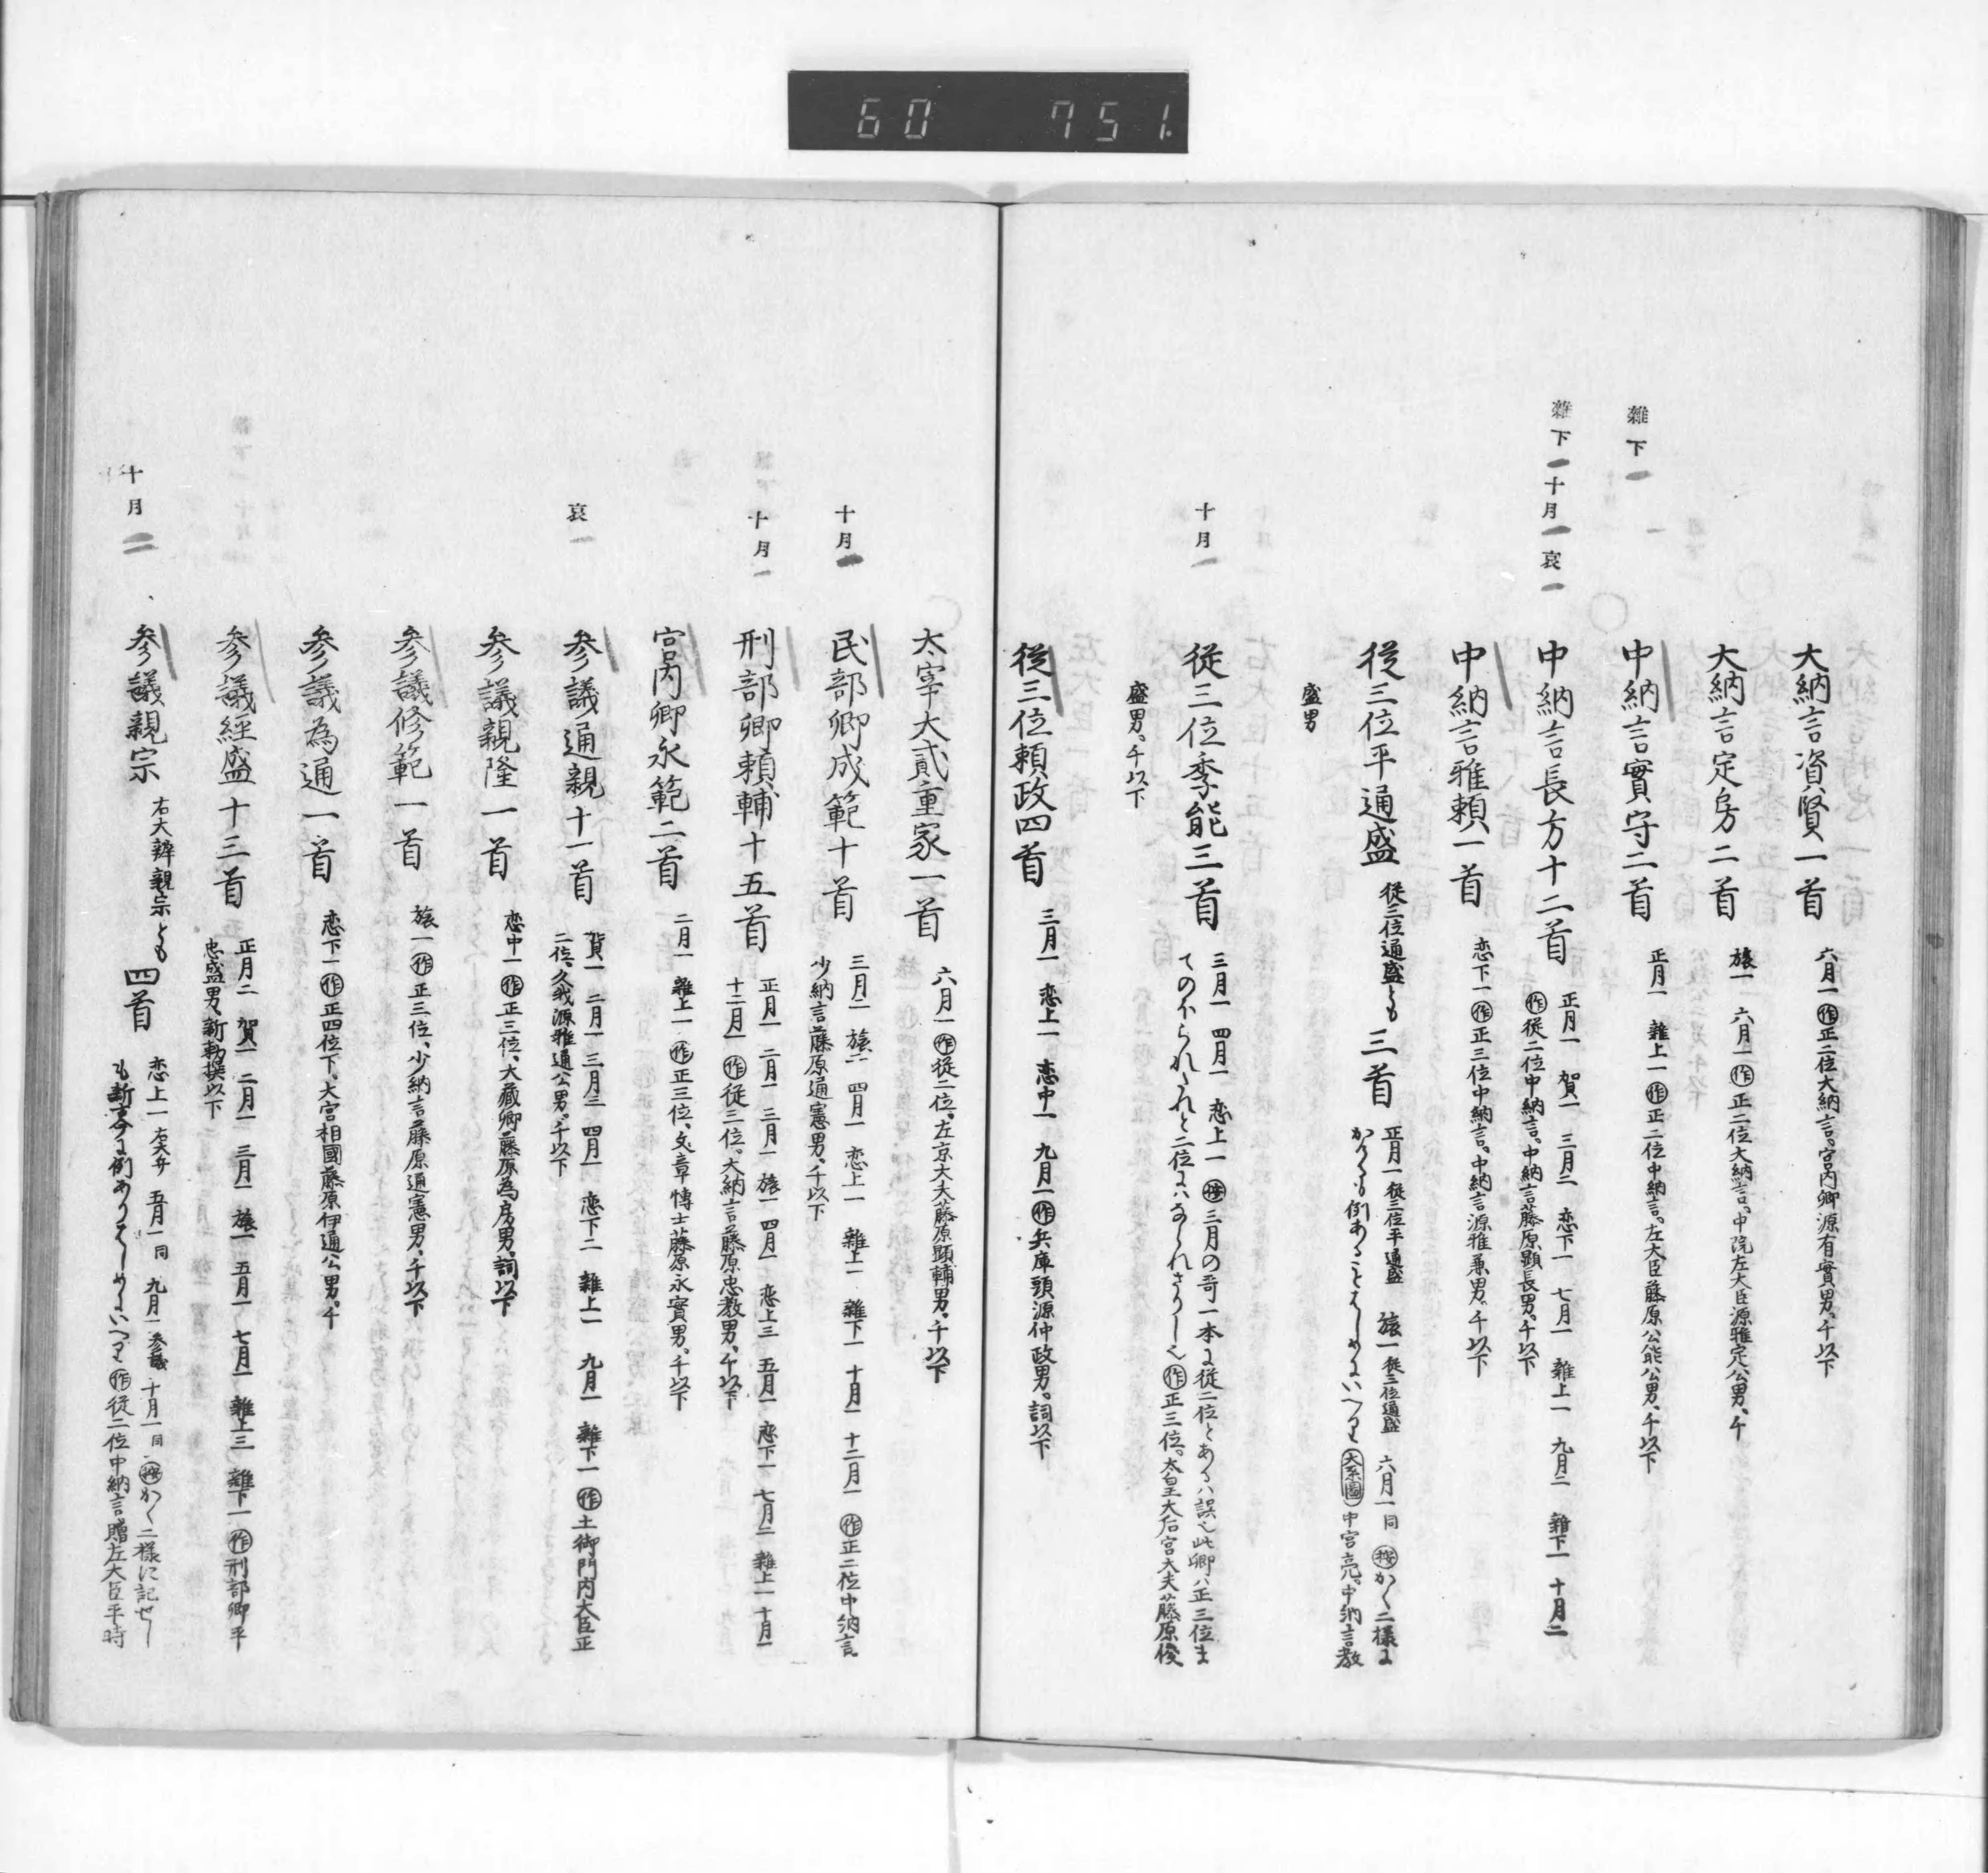 60 751.
大納言資賢一首 六月一 作 正二位大納言。宮内卿源有賢男。千以下
大納言定房二首 旅一 六月一 作 正二位大納言。中院左大臣源雅定公男。千
雑下一
中納言實守二首 正月一 雜上一 作 正二位中納言。左大臣藤原公能公男。千以下
雜下一 十月一 哀一
中納言長方十二首 正月一 賀一 三月二 恋下一 七月一 雜上一 九月二 雜下一 十月二
作 従二位中納言。中納言藤原顕長男。千以下
中納言雅頼一首 恋下一 作 正三位中納言。中納言源雅兼男。千以下
従三位平通盛 従三位通盛とも 三首 正月一 従三位平通盛 旅一 従三位通盛 六月一 同 按 かく二様に
大系圖 中宮亮。中納言教
盛男
十月一
従三位季能三首 三月一 四月一 恋上一 按 三月の哥一本に従二位とあるハ誤也此卿ハ正三位ま
作 正三位。太皇大后宮大夫藤原俊
盛男。千以下
従三位頼政四首 三月一 恋上一 恋中一 九月一 作 兵庫頭源仲政男。詞以下
太宰大貳重家一首 六月一 作 従二位。左京大夫藤原顕輔男。千以下
十月一
民部卿成範十首 三月二 旅一 四月一 恋上一 雜上一 雜下一 十月一 十二月一 作 正二位中納言。
少納言藤原通憲男。千以下
十月一
刑部卿頼輔十五首 正月一 二月一 三月一 旅一 四月一 恋上三 五月一 恋下一 七月二 雜上一 十月一
十二月一 作 従三位。大納言藤原忠教男。千以下
宮内卿永範二首 二月一 雜上一 作 正三位。文章博士藤原永實男。千以下
哀一
参議通親十一首 賀一 二月一 三月三 四月一 恋下二 雜上一 九月一 雜下一 作 土御門内大臣正
二位。久我源雅通公男。千以下
参議親隆一首 恋中一 作 正三位。大藏卿藤原為房男。詞以下
参議修範一首 旅一 作 正三位。少納言藤原通憲男。千以下
参議為通一首 恋下一 作 正四位下。大宮相國藤原伊通公男。千
参議経盛十三首 正月二 賀一 二月一 三月一 旅一 五月一 七月一 雜上三 雜下一 作 刑部卿平
忠盛男。新勅撰以下
十月二
参議親宗 右大辨親宗とも 四首 恋上一 五月一 同 九月一 参議 十月一 同 按 かく二様に記せし
作 従二位中納言。贈左大臣平時